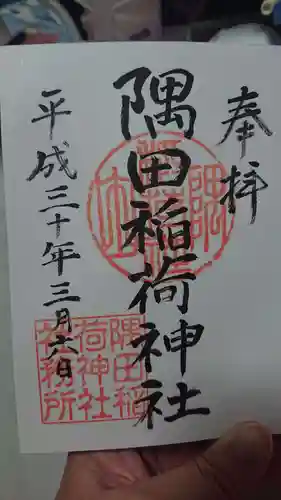 奉拝
隅田稲荷神社
平成三十年三月六日
隅田稲
荷神社
社務所